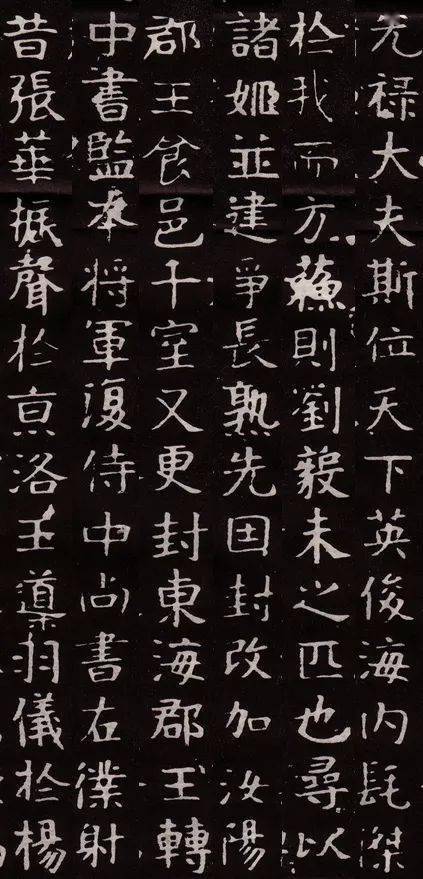 光禄大夫斯位天下英俊海内髦傑
於我而方蘇則劉毅未之匹也尋以
諸姬並建爭長熟先因封改加汝陽
郡王食邑千室又更封東海郡王轉
中書監本將軍復侍中尚書右僕射
昔張華振聲於京洛王導羽儀於楊